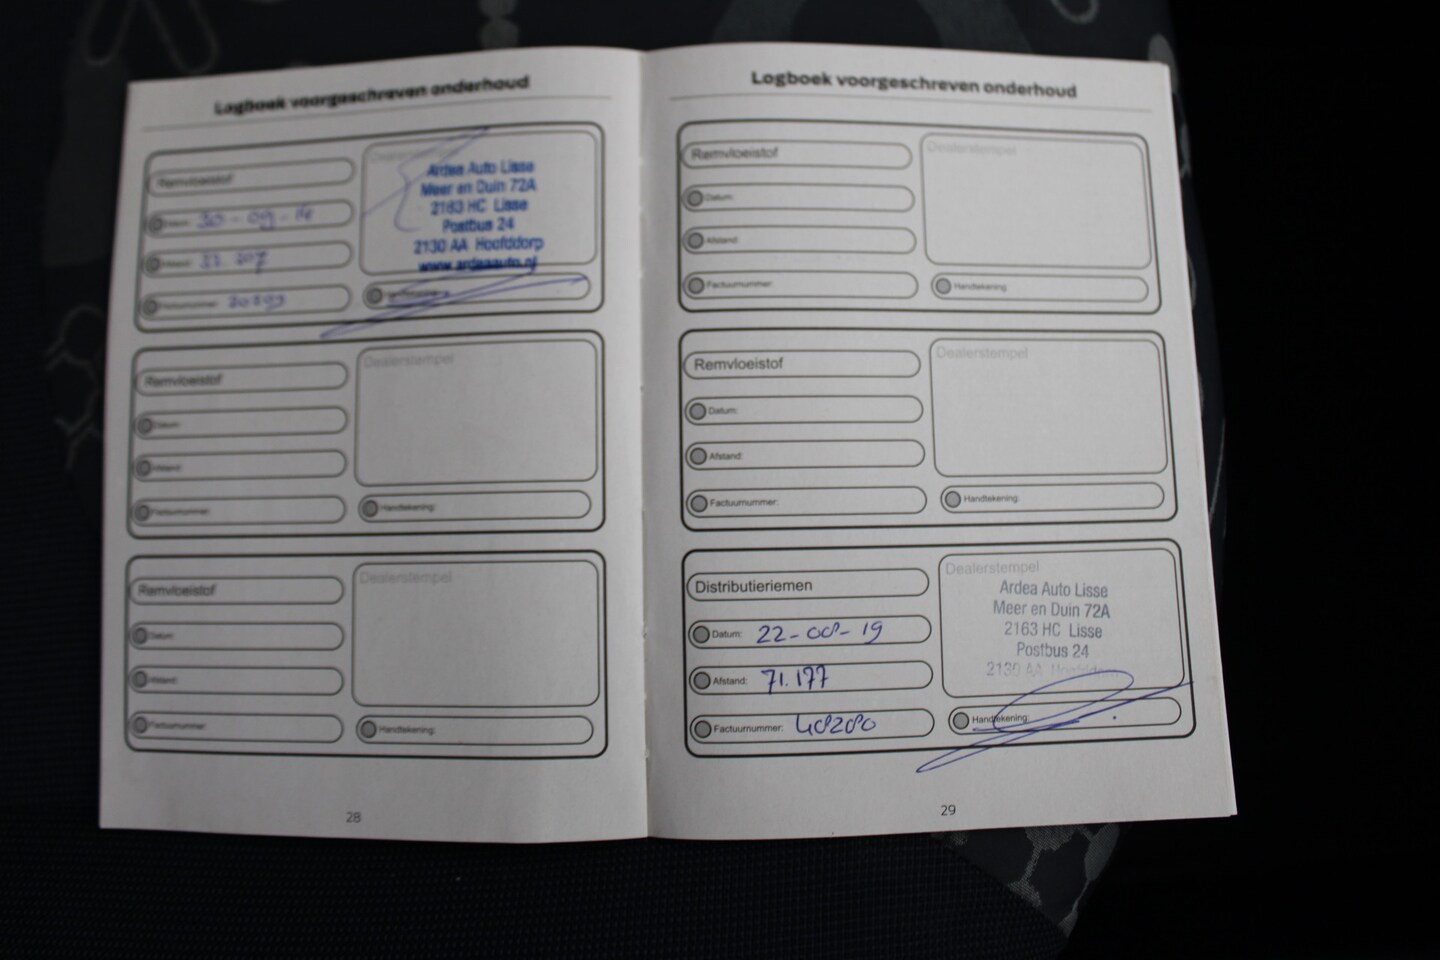 Logboek voorgeschreven onderhoud
Remvloeistof
Datum: 30-09-14
Afstand:
Factuurnummer:
Dealerstempel
Ardea Auto Lisse
Meer en Duin 72A
2163 HC Lisse
Postbus 24
2130 AA Hoofddorp
www.ardeaauto.nl
Remvloeistof
Datum:
Afstand:
Factuurnummer:
Dealerstempel
Handtekening:
Remvloeistof
Datum:
Afstand:
Factuurnummer:
Dealerstempel
Handtekening:
28
Logboek voorgeschreven onderhoud
Remvloeistof
Datum:
Afstand:
Factuurnummer:
Dealerstempel
Handtekening:
Remvloeistof
Datum:
Afstand:
Factuurnummer:
Dealerstempel
Handtekening:
Distributieriemen
Datum: 22-08-19
Afstand: 71.177
Factuurnummer: 48280
Dealerstempel
Ardea Auto Lisse
Meer en Duin 72A
2163 HC Lisse
Postbus 24
2130 AA Hoofddorp
Handtekening:
29